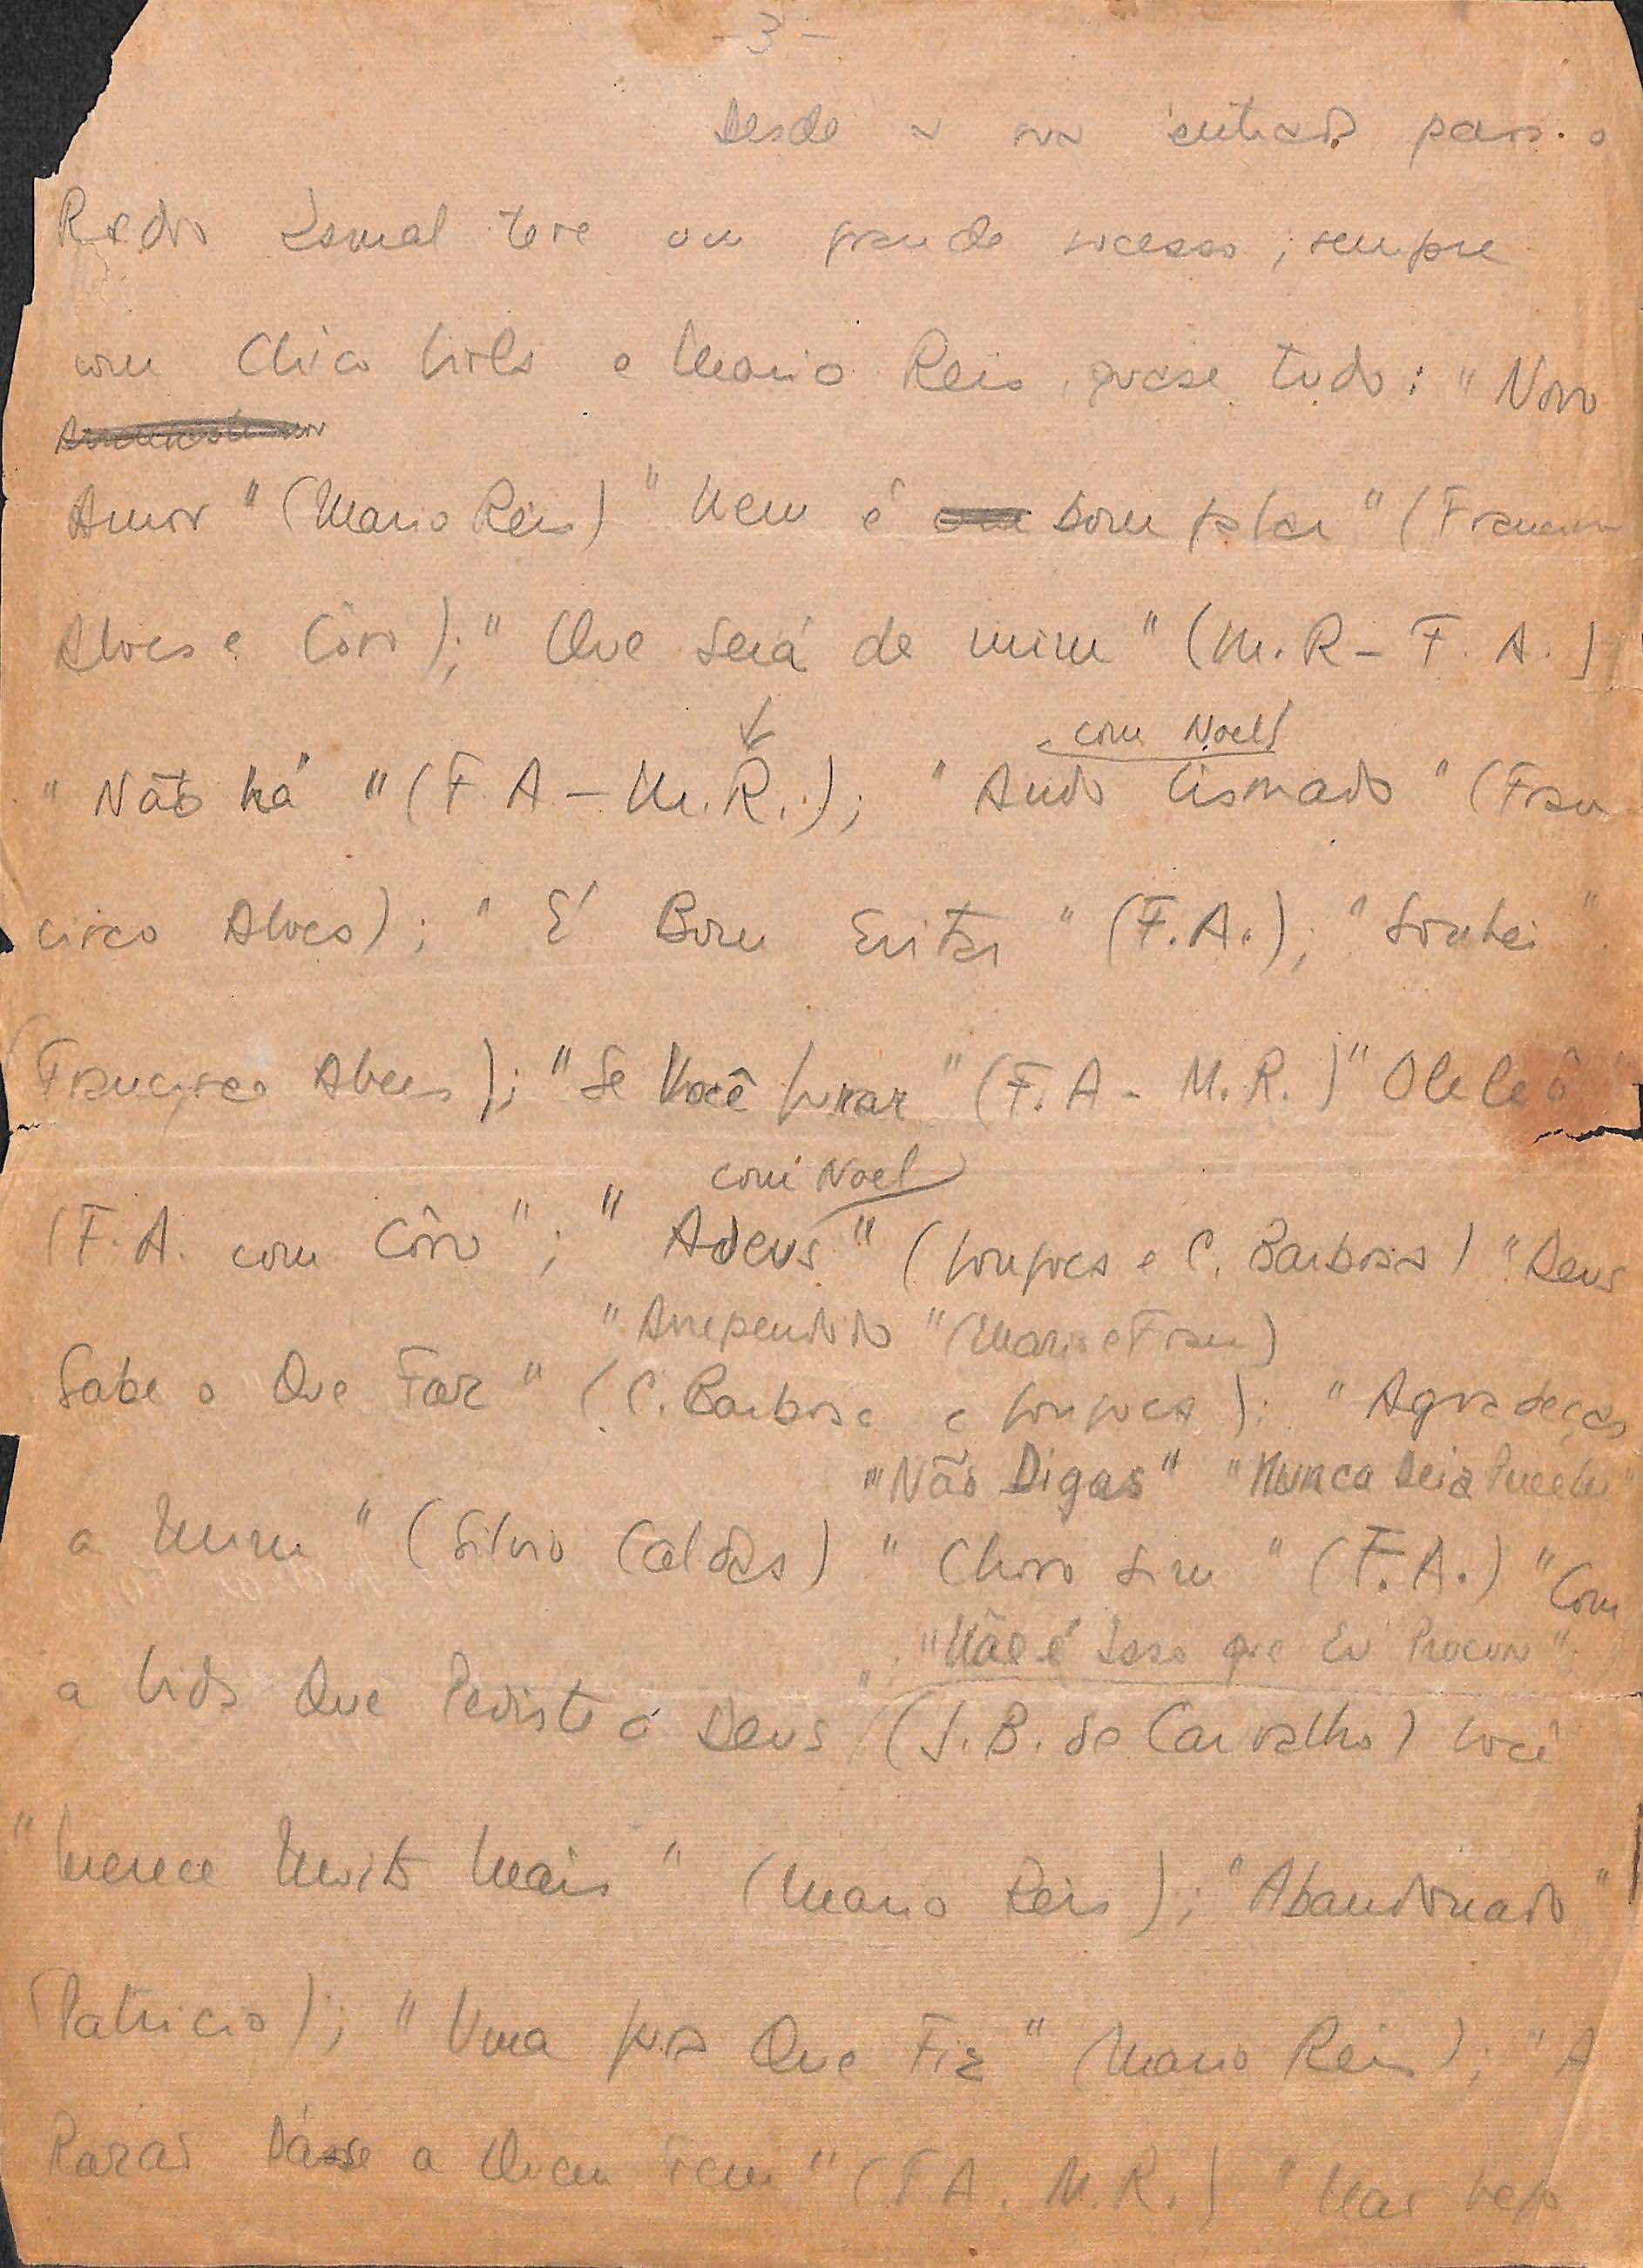 - 3 -
Desde a sua entrada para o
Radio Ismael teve um grande sucesso, sempre
com Chico Viola e Mario Reis, quase tudo: "Novo
Amor" (Mario Reis) "Nem é bom falar" (Francisco
Alves e Côro); "Que Será de mim" (M. R - F. A.)
com Noel
"Não há" (F. A - M. R.); "Ando Cismado" (Fran
cisco Alves); "É Bom Evitar" (F. A.); "Sonhei"
(Francisco Alves); "Se Você jurar" (F. A - M. R.) "Olê leô"
com Noel
(F. A. com Côro"; "Adeus" (Jonjoca e C. Barbosa) "Deus
"Arrependido" (Mario e Fran)
Sabe o Que Faz" (C. Barbosa e Jonjoca); "Agradeças
"Não Digas" "Nunca Dei a Perceber"
a Mim" (Silvio Caldas) "Choro Sim" (F. A.) "Com
"Não é Isso que Eu Procuro"
a Vida Que Pediste a Deus" (J. B. de Carvalho) Você
"Merece Muito Mais" (Mario Reis); "Abandonado"
(Patricio); "Uma jura Que Fiz" (Mario Reis); "A
Razão Dá-se a Quem Tem" (F. A. M. R.) "Mas